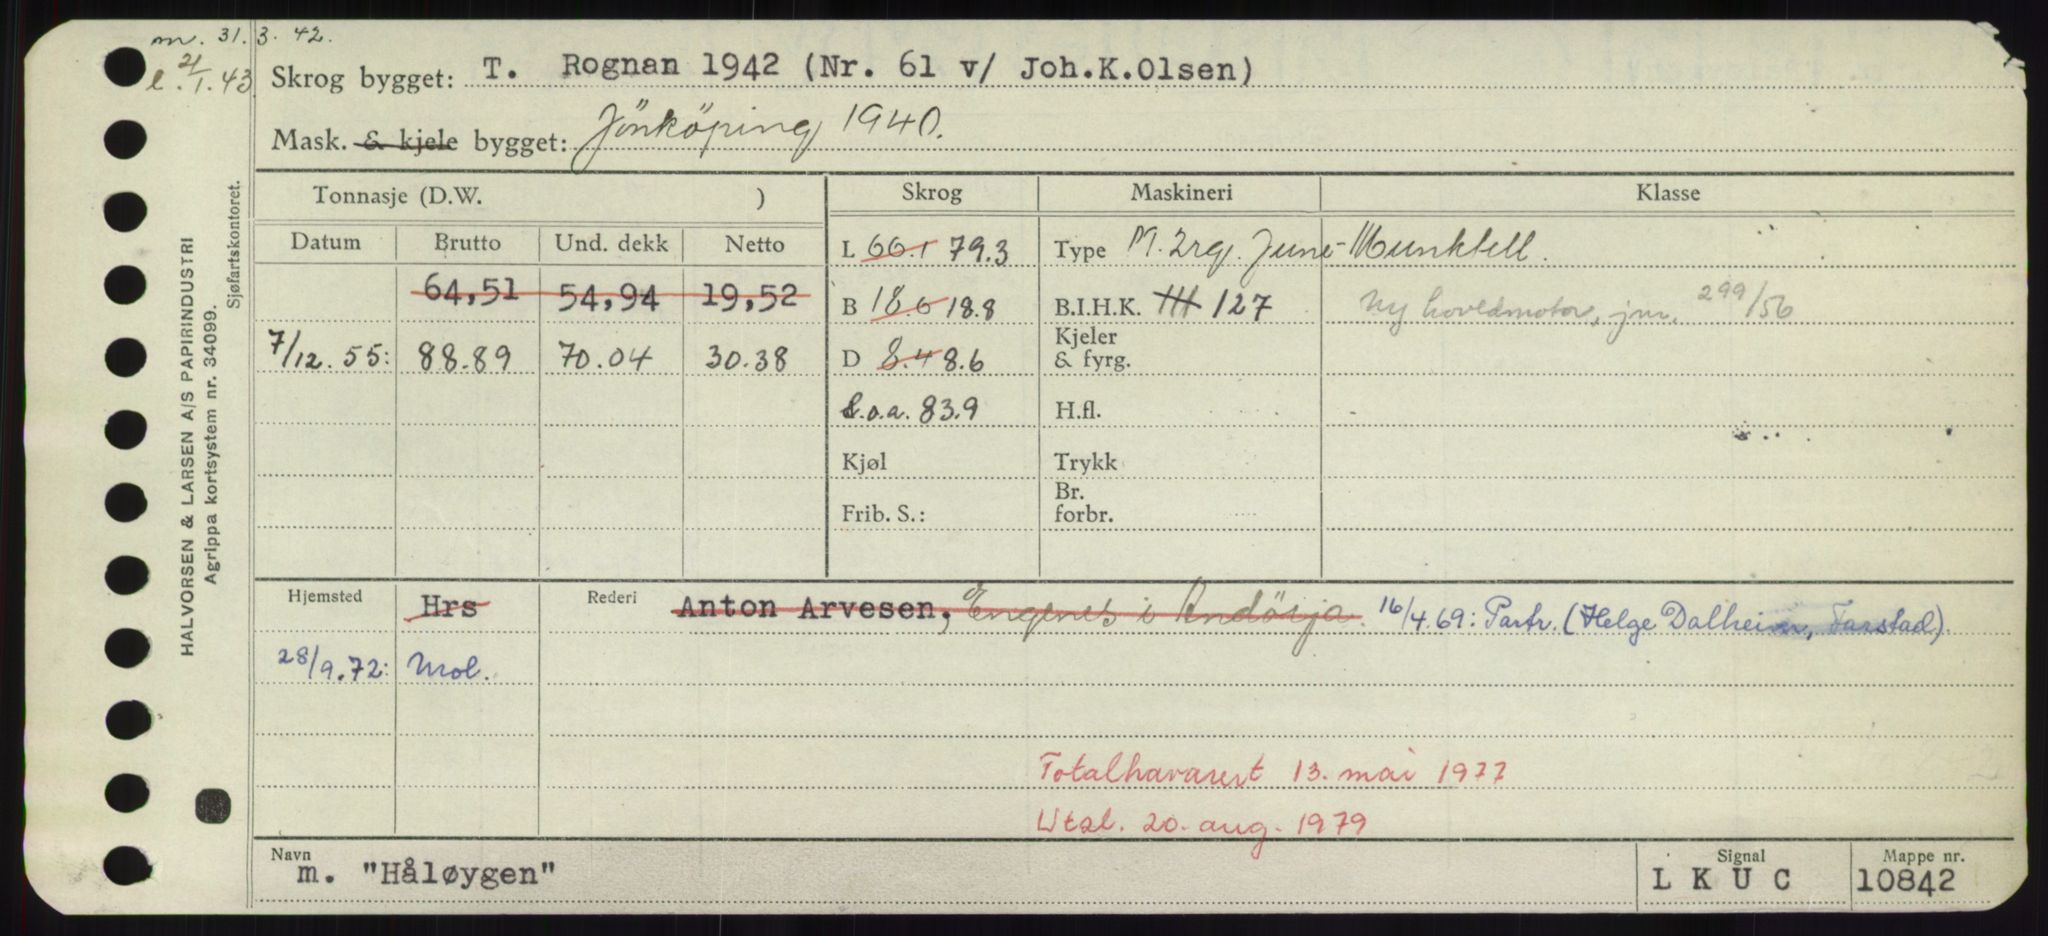 m. 31.3.42.
l. 2/1.43
Skrog bygget: T. Rognan 1942 (Nr. 61 v/ Joh.K.Olsen)
Mask. & kjele bygget: Jönköping 1940.
Tonnasje (D.W. ) Skrog Maskineri Klasse
Datum Brutto Und. dekk Netto L 66.1 79.3 Type M. 2rg. June-Munktell.
64,51 54,94 19,52 B 18.6 18.8 B.I.H.K. 127 Ny hovedmotor, jnr. 299/56
7/12.55: 88.89 70.04 30.38 D 8.4 8.6 Kjeler & fyrg.
L.o.a. 83.9 H.fl.
Kjøl Trykk
Frib. S.: Br. forbr.
Hjemsted Hrs Rederi Anton Arvesen, Engenes i Andörja. 16/4.69: Partr. (Helge Dalheim, Farstad).
28/9.72: Mol.
Totalhavarert 13. mai 1977
Utsl. 20. aug. 1979
Navn Signal Mappe nr.
m. "Håløygen" L K U C 10842
HALVORSEN & LARSEN A/S PAPIRINDUSTRI
Agrippa kortsystem nr. 34099.
Sjøfartskontoret.